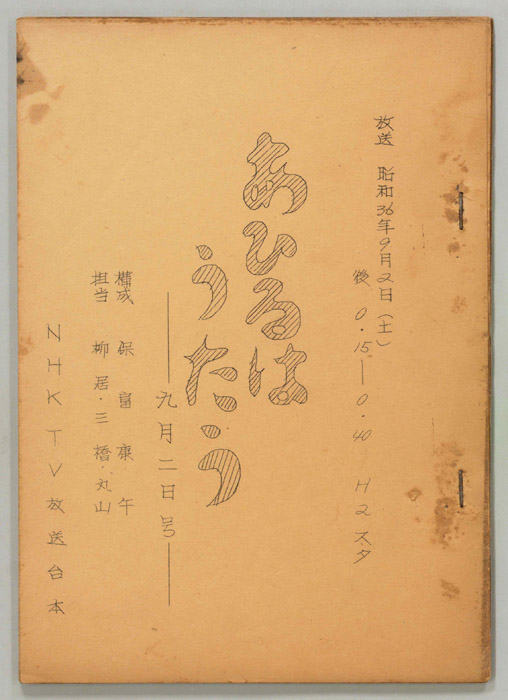 放送 昭和36年9月2日(土)
後 0.15―0.40 H2スタ
あひるは
うたう
―九月二日号―
構成 保富康午
担当 柳居・三橋・丸山
NHK TV放送台本